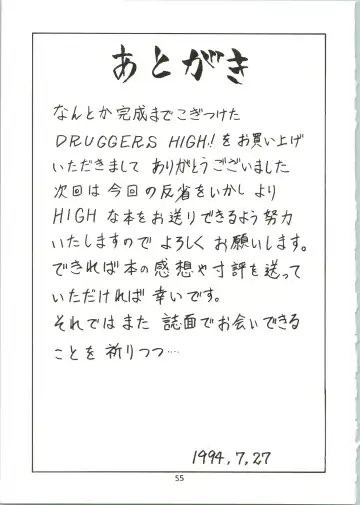 あとがき
なんとか完成までこぎつけた
DRUGGERS HIGH!をお買い上げ
いただきまして ありがとうございました
次回は今回の反省をいかし より
HIGHな本をお送りできるよう努力
いたしますので よろしく お願いします。
できれば本の感想や寸評を送って
いただければ 幸いです。
それではまた 誌面でお会いできる
ことを 祈りつつ…
1994,7,27
55